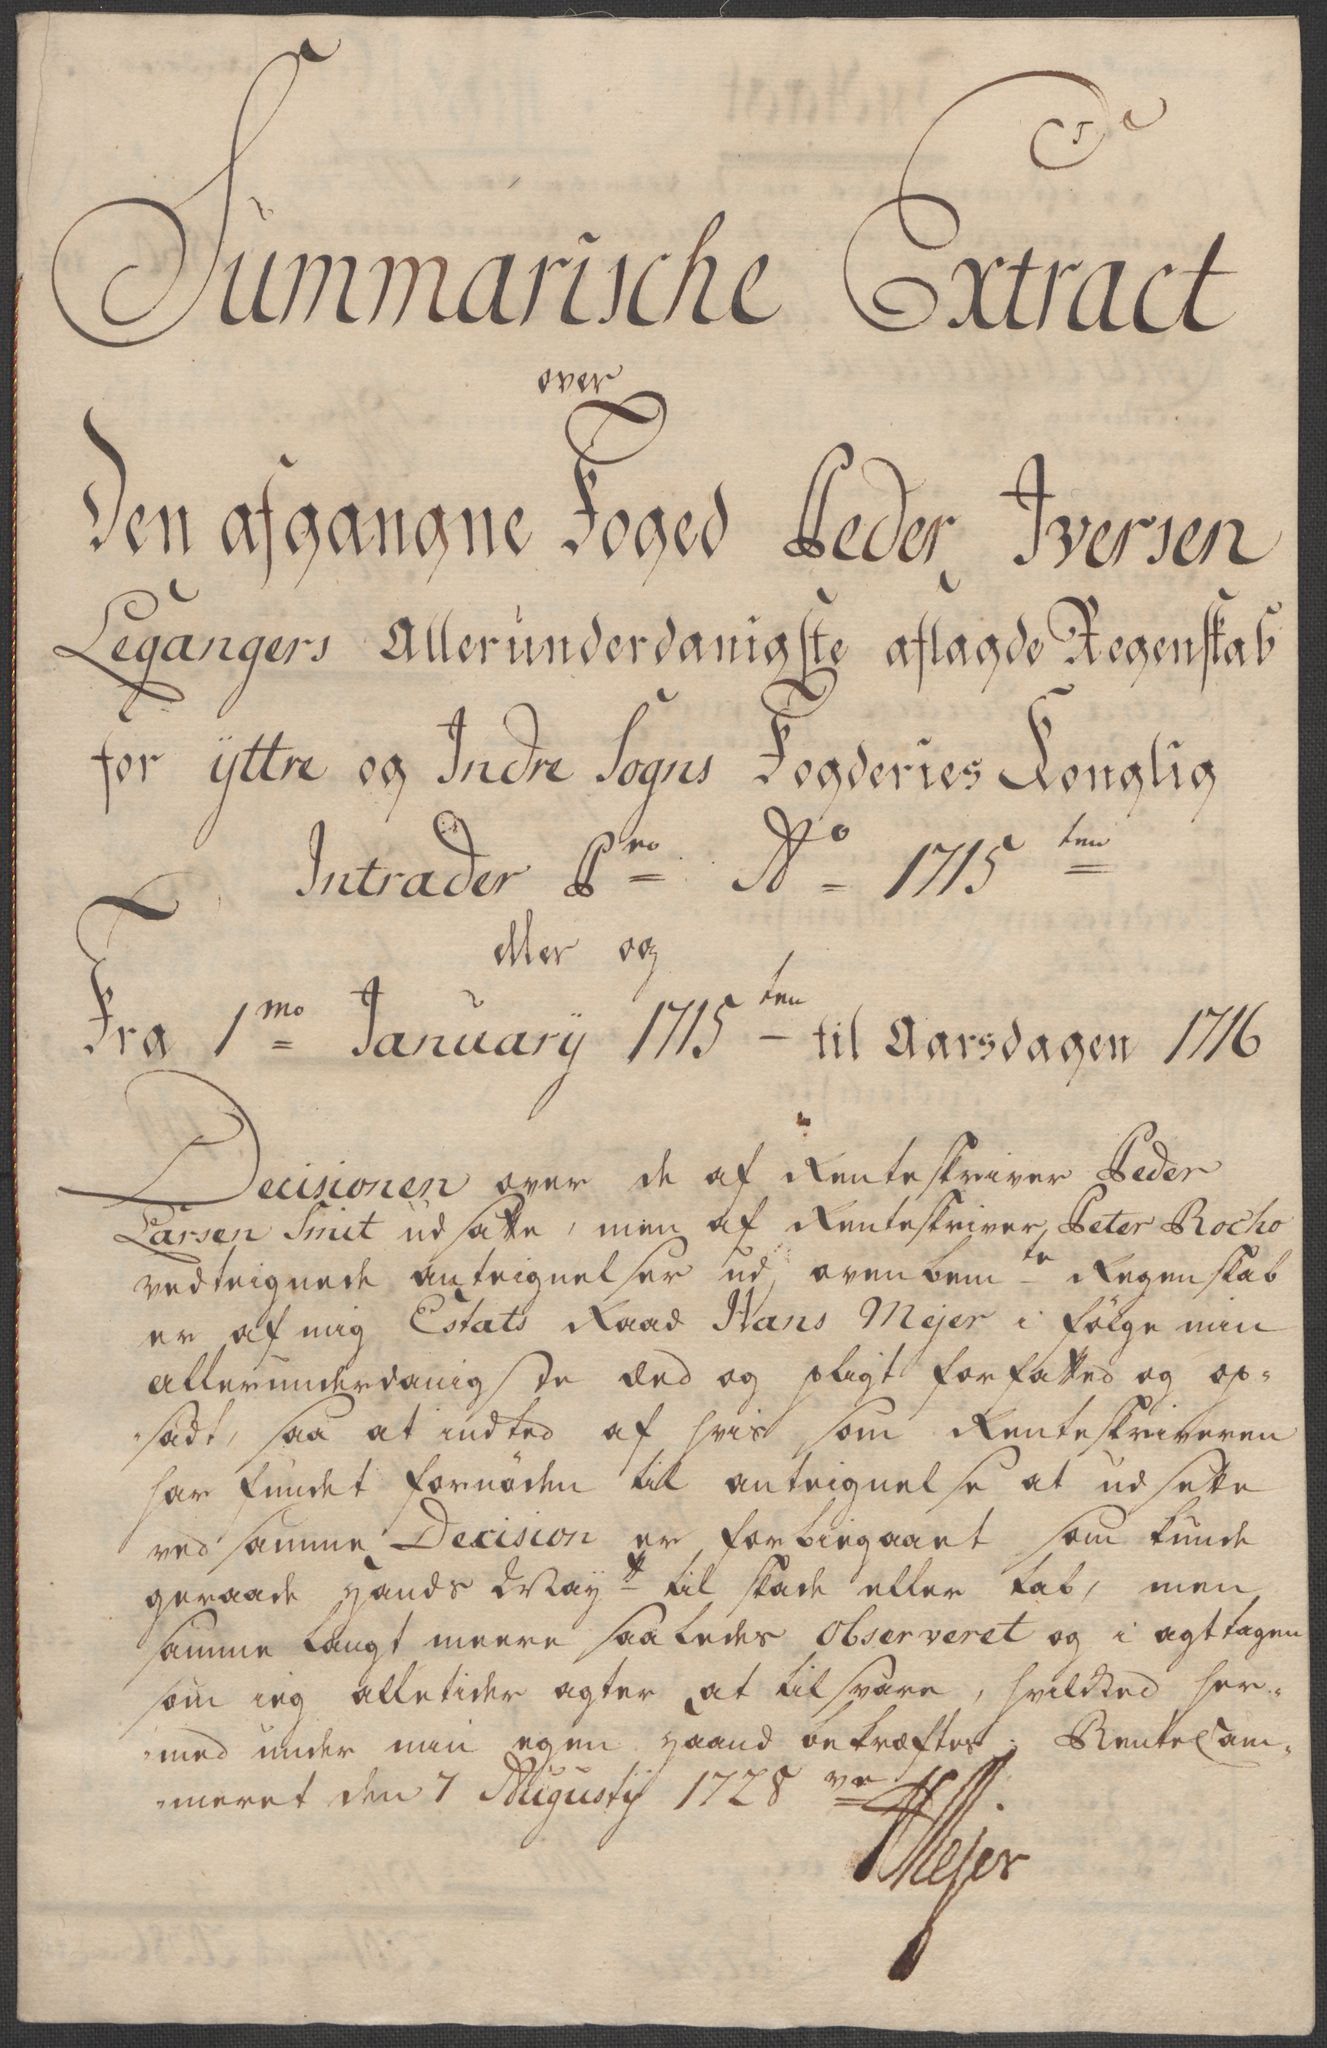 Summarische Extract
over
Den afgangne Foged Peder Iversen
Legangers Allerunderdanigste aflagde Regenskab
for ÿttre og Indre Sogns Fogderies Konglig
Intrader Pro Ao 1715ten
eller og
Fra 1mo Januarÿ 1715ten til Aarsdagen 1716
Decisionen over de af Renteskriver Peder
Larsen Smit udsatte, men af Renteskriver Peter Rocho
vedteignede anteignelser udj ovenbemte Regenskab
er af mig Estats Raad Hans Mejer i følge min
allerunderdanigste Eed og pligt forfatted og op-
-sadt, saa at indted af hvis som Renteskriveren
har fundet fornøden til anteignelse at udsette
ved samme Decision er forbiegaaet som kunde
geraade Hands Maytt til skade eller tab, men
samme langt meere saaledes observeret og i agttagen
som ieg alletider agter at tilsvare, hvilcked her-
-med under min egen Haand bekræftes. RenteCam-
-meret den 7 Augustÿ 1728
HMejer